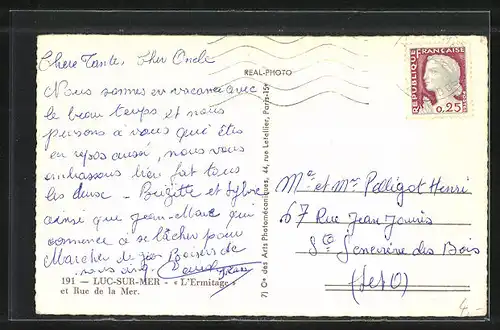 Chere Tante, Cher Oncle
Nous sommes en vacance avec
le beau temps et nous
pensons à vous qui êtes
en repos aussi, nous vous
embrassons bien fort tous
les deux - Brigitte et Sylvie
ainsi que Jean-Marc qui
commence a se lâcher pour
Marcher
nous
191 — LUC-SUR-MER - « L'Ermitage »
et Rue de la Mer.
REAL-PHOTO
7) Cie des Arts Photomécaniques, 44, rue Letellier, Paris-15e
REPUBLIQUE FRANÇAISE
0,25
Me et Mr Pelligot Henri
67 Rue Jean Jaurès
Ste Genevière des Bois
(S et O)